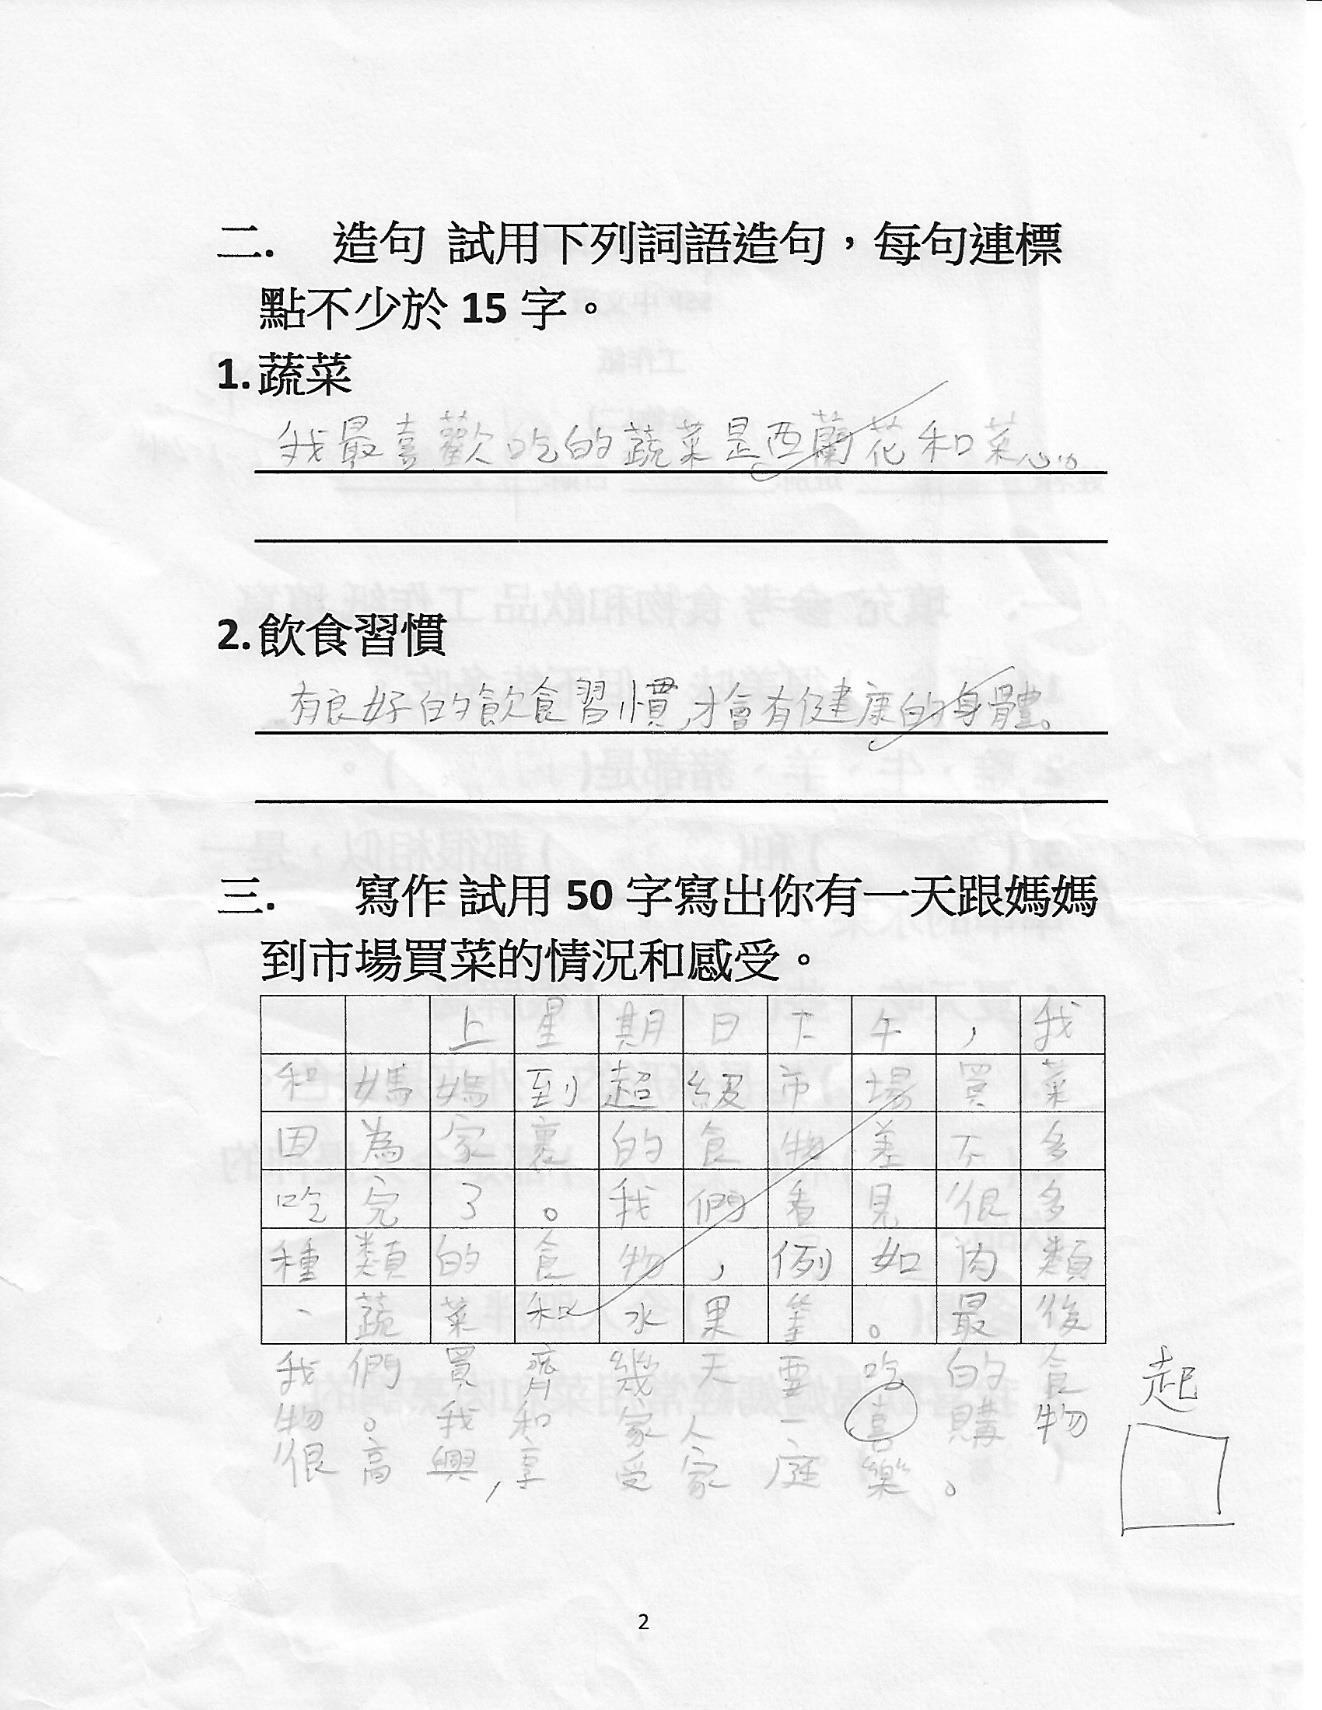 二. 造句 試用下列詞語造句，每句連標
點不少於 15 字。
1. 蔬菜
我最喜歡吃的蔬菜是西蘭花和菜心。
2. 飲食習慣
有良好的飲食習慣,才會有健康的身體。
三. 寫作 試用 50 字寫出你有一天跟媽媽
到市場買菜的情況和感受。
上星期日下午，我
和媽媽到超級市場買菜
因為家裏的食物差不多
吃完了。我們看見很多
種類的食物，例如肉類
、蔬菜和水果等。最後
我們買齊幾天要吃的食
物。我和家人一喜購物
很高興,享受家庭樂。
起
2